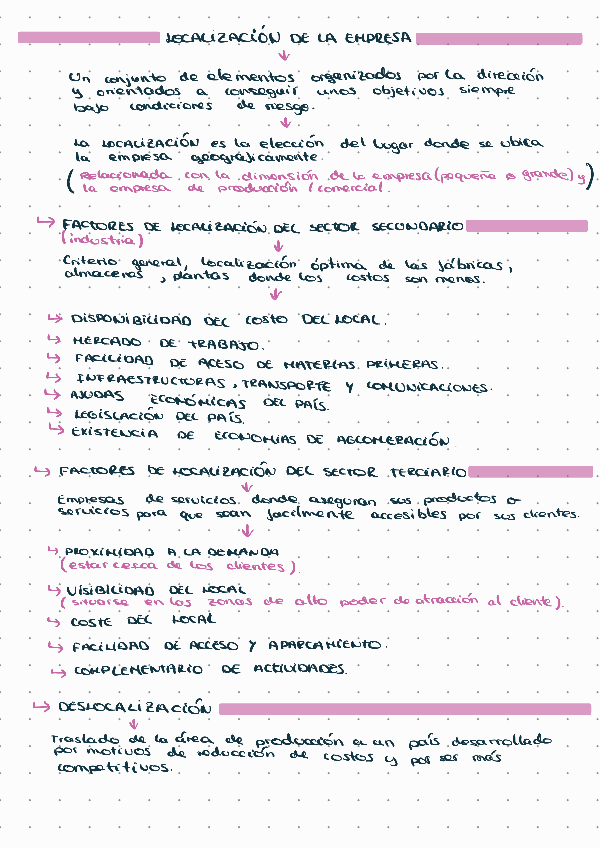 LOCALIZACIÓN DE LA EMPRESA
Un conjunto de elementos organizados por la dirección
y orientados a conseguir unos objetivos siempre
bajo condiciones de riesgo.
La LOCALIZACIÓN es la elección del lugar donde se ubica
la empresa geográficamente.
(Relacionada con la dimensión de la empresa (pequeña o grande) y
la empresa de producción / comercial.)
FACTORES DE LOCALIZACIÓN DEL SECTOR SECUNDARIO
(industria)
Criterio general, localización óptima de las fábricas,
almacenes, plantas donde los costos son menos.
DISPONIBILIDAD DEL COSTO DEL LOCAL.
MERCADO DE TRABAJO.
FACILIDAD DE ACESO DE MATERIAS PRIMERAS.
INFRAESTRUCTURAS, TRANSPORTE Y COMUNICACIONES.
AJUDAS ECONÓMICAS DEL PAÍS.
LEGISLACIÓN DEL PAÍS.
EXISTENCIA DE ECONOMIAS DE AGLOMERACIÓN
FACTORES DE LOCALIZACIÓN DEL SECTOR TERCIARIO
Empresas de servicios donde aseguran sus productos o
servicios para que sean facilmente accesibles por sus clientes.
PROXIMIDAD A LA DEMANDA
(estar cerca de los clientes)
VISIBILIDAD DEL LOCAL
(situarse en las zonas de alto poder de atracción al cliente).
COSTE DEL LOCAL
FACILIDAD DE ACCESO Y APARCAMIENTO.
COMPLEMENTARIO DE ACTIVIDADES.
DESLOCALIZACIÓN
Traslado de la área de producción a un país desarrollado
por motivos de reducción de costos y por ser más
competitivos.